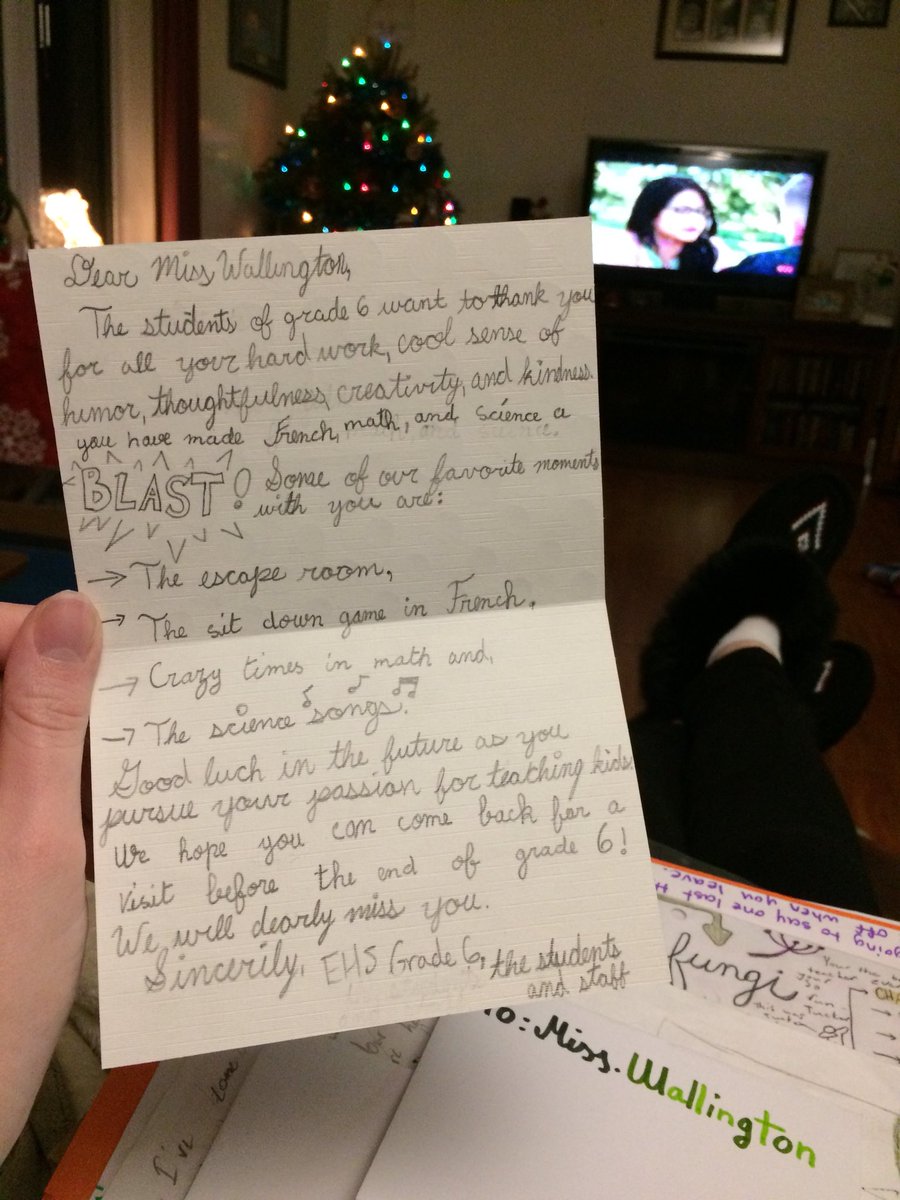 Dear Miss Wallington,
The students of grade 6 want to thank you
for all your hard work, cool sense of
humor, thoughtfulness, creativity, and kindness.
you have made French, math, and science a
BLAST! Some of our favorite moments
with you are:
→ The escape room,
→ The sit down game in French,
→ Crazy times in math and,
→ The science songs.
Good luch in the future as you
pursue your passion for teatching kids.
We hope you can come back for a
visit before the end of grade 6!
We will dearly miss you.
Sincerily, EHS Grade 6, the students
and staff
going to say one last
when you leave.
fungi
To: Miss. Wallington
I've
tome